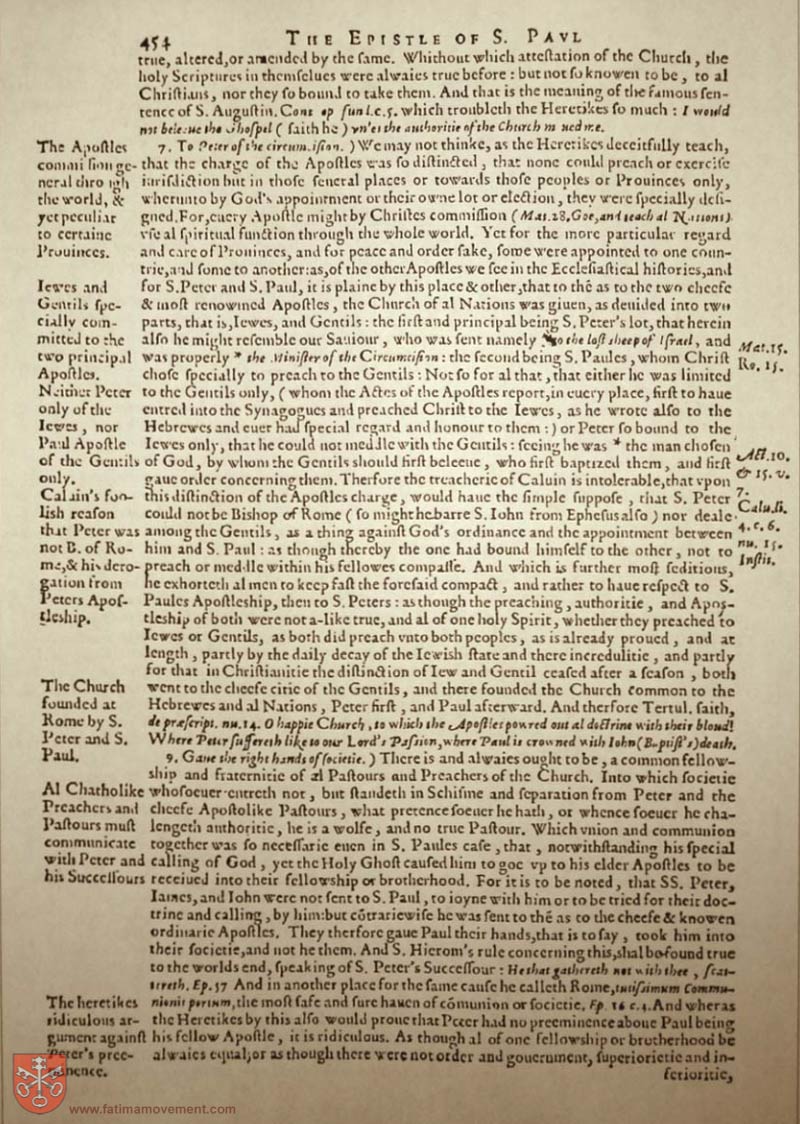 454
THE EPISTLE OF S. PAVL
true, altered, or amended by the same. Whithout which attestation of the Church, the
holy Scriptures in themselues were alwaies true before: but not so knowen to be, to al
Christians, nor they so bound to take them. And that is the meaning of the famous sen-
tence of S. Augustin. Cont ep fun l.c.5. which troubleth the Heretikes so much: I would
not beleeue the Ghospel (saith he) vnles the authoritie of the Church moued me.
7. To Peter of the circumcision.) We may not thinke, as the Heretikes deceitfully teach,
that the charge of the Apostles was so distincted, that none could preach or exercise
iurisdiction but in those seueral places or towards those peoples or Prouinces only,
wherunto by God's appointment or their owne lot or election, they were specially desi-
gned. For, euery Apostle might by Christes commission (Mat. 28. Goe, and teach al Nations)
vse al spiritual function through the whole world. Yet for the more particular regard
and care of Prouinces, and for peace and order sake, some were appointed to one coun-
trie, and some to another: as, of the other Apostles we see in the Ecclesiastical histories, and
for S. Peter and S. Paul, it is plaine by this place & other, that to thē as to the two cheefe
& most renowmed Apostles, the Church of al Nations was giuen, as deuided into two
parts, that is, Iewes, and Gentils: the first and principal being S. Peter's lot, that herein
also he might resemble our Sauiour, who was sent namely to the lost sheep of Israel, and
was properly * the Minister of the Circumcision: the second being S. Paules, whom Christ
chose specially to preach to the Gentils: Not so for al that, that either he was limited
to the Gentils only, (whom the Actes of the Apostles report, in euery place, first to haue
entred into the Synagogues and preached Christ to the Iewes, as he wrote also to the
Hebrewes and euer had special regard and honour to them:) or Peter so bound to the
Iewes only, that he could not meddle with the Gentils: seeing he was * the man chosen
of God, by whom the Gentils should first beleeue, who first baptized them, and first
gaue order concerning them. Therfore the treacherie of Caluin is intolerable, that vpon
this distinction of the Apostles charge, would haue the simple suppose, that S. Peter
could not be Bishop of Rome (so might he barre S. Iohn from Ephesus also) nor deale
among the Gentils, as a thing against God's ordinance and the appointment between
him and S. Paul: as though thereby the one had bound himself to the other, not to
preach or meddle within his fellowes compasse. And which is further most seditious,
he exhorteth al men to keep fast the foresaid compact, and rather to haue respect to S.
Paules Apostleship, then to S. Peters: as though the preaching, authoritie, and Apos-
tleship of both were not a-like true, and al of one holy Spirit, whether they preached to
Iewes or Gentils, as both did preach vnto both peoples, as is already proued, and at
length, partly by the daily decay of the Iewish state and there incredulitie, and partly
for that in Christianitie the distinction of Iew and Gentil ceased after a season, both
went to the cheefe citie of the Gentils, and there founded the Church common to the
Hebrewes and al Nations, Peter first, and Paul afterward. And therfore Tertul. saith,
de præscript. nu. 14. O happie Church, to which the Apostles powred out al doctrine with their bloud!
Where Peter suffereth like to our Lord's Passion, where Paul is crowned with Iohn (Baptist's) death.
9. Gaue the right hands of societie.) There is and alwaies ought to be, a common fellow-
ship and fraternitie of al Pastours and Preachers of the Church. Into which societie
whosoeuer entreth not, but standeth in Schisme and separation from Peter and the
cheefe Apostolike Pastours, what pretence soeuer he hath, or whence soeuer he cha-
lengeth authoritie, he is a wolfe, and no true Pastour. Which vnion and communion
together was so necessarie euen in S. Paules case, that, notwithstanding his special
calling of God, yet the Holy Ghost caused him to goe vp to his elder Apostles to be
receiued into their fellowship or brotherhood. For it is to be noted, that SS. Peter,
Iames, and Iohn were not sent to S. Paul, to ioyne with him or to be tried for their doc-
trine and calling, by him: but cōtrariewise he was sent to thē as to the cheefe & knowen
ordinarie Apostles. They therfore gaue Paul their hands, that is to say, took him into
their societie, and not he them. And S. Hierom's rule concerning this, shal be found true
to the worlds end, speaking of S. Peter's Successour: He that gathereth not with thee, scat-
tereth. Ep. 57 And in another place for the same cause he calleth Rome, tutissimum Commu-
nionis portum, the most safe and sure hauen of cōmunion or societie. Ep. 16 c. 4. And wheras
the Heretikes by this also would proue that Peter had no preeminence aboue Paul being
his fellow Apostle, it is ridiculous. As though al of one fellowship or brotherhood be
alwaies equal, or as though there were not order and gouernment, superiorietie and in-
ferioritie,
The Apostles
commission ge-
neral through
the world, &
yet peculiar
to certaine
Prouinces.
Iewes and
Gentils spe-
cially com-
mitted to the
two principal
Apostles.
Neither Peter
only of the
Iewes, nor
Paul Apostle
of the Gentils
only.
Caluin's foo-
lish reason
that Peter was
not B. of Ro-
me, & his dero-
gation from
Peters Apos-
tleship.
The Church
founded at
Rome by S.
Peter and S.
Paul.
Al Chatholike
Preachers and
Pastours must
communicate
with Peter and
his Successours
The heretikes
ridiculous ar-
gument against
Peter's pree-
minence.
Mat. 15.
Ro. 15.
Act. 10.
& 15. v.
7.
Calu. li.
4. c. 6.
nu. 15.
Instit.
www.fatimamovement.com